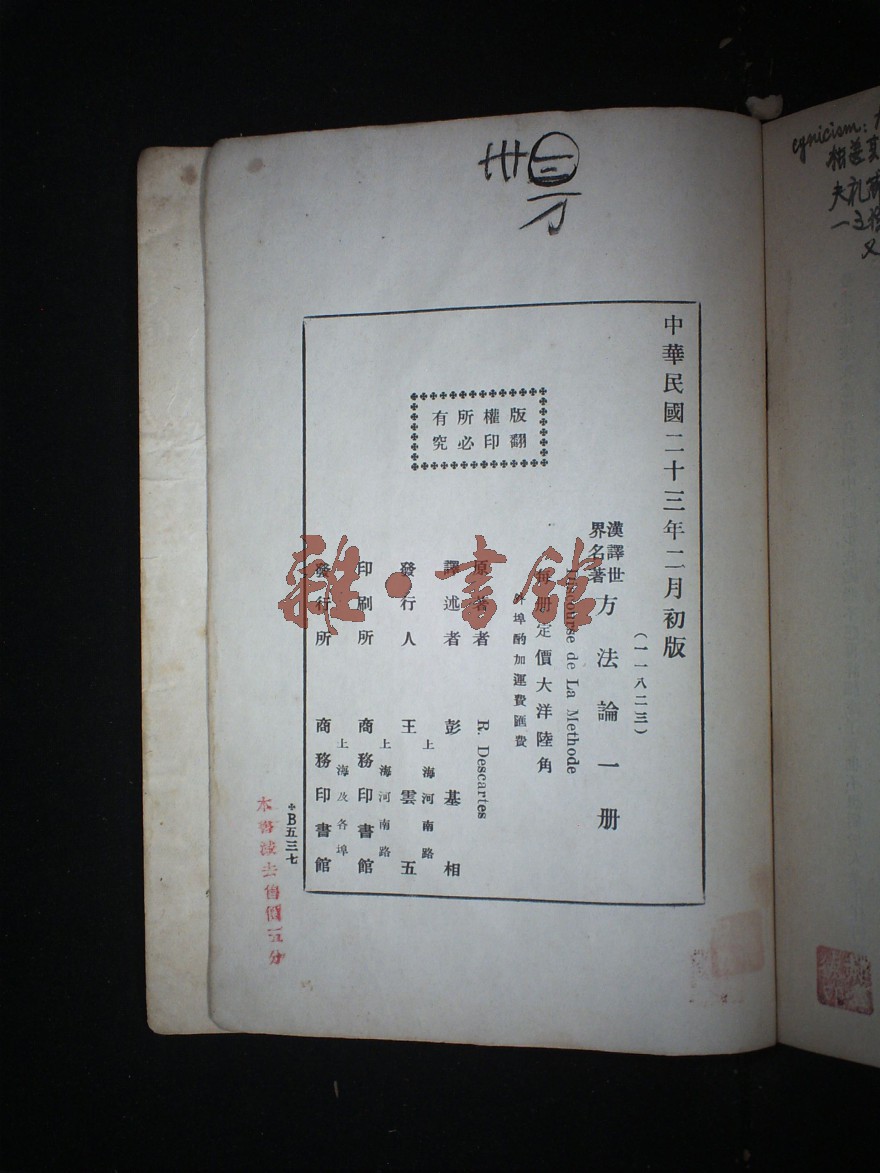 中華民國二十三年二月初版
(一一八二三)
漢譯世界名著 方法論一册
Discourse de La Methode
每册定價大洋陸角
外埠酌加運費匯費
原著者 R. Descartes
譯述者 彭基相
發行人 王雲五
上海河南路
印刷所 商務印書館
上海河南路
發行所 商務印書館
上海及各埠
版權所有
翻印必究
B五三七
本書減去售價五分
雜·書館
cynicism: